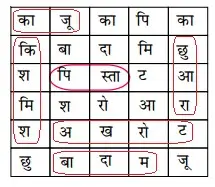 का जू का पि का
कि बा दा मि छु
श पि स्ता ट आ
मि श रो आ रा
श अ ख रो ट
छु बा दा म जू